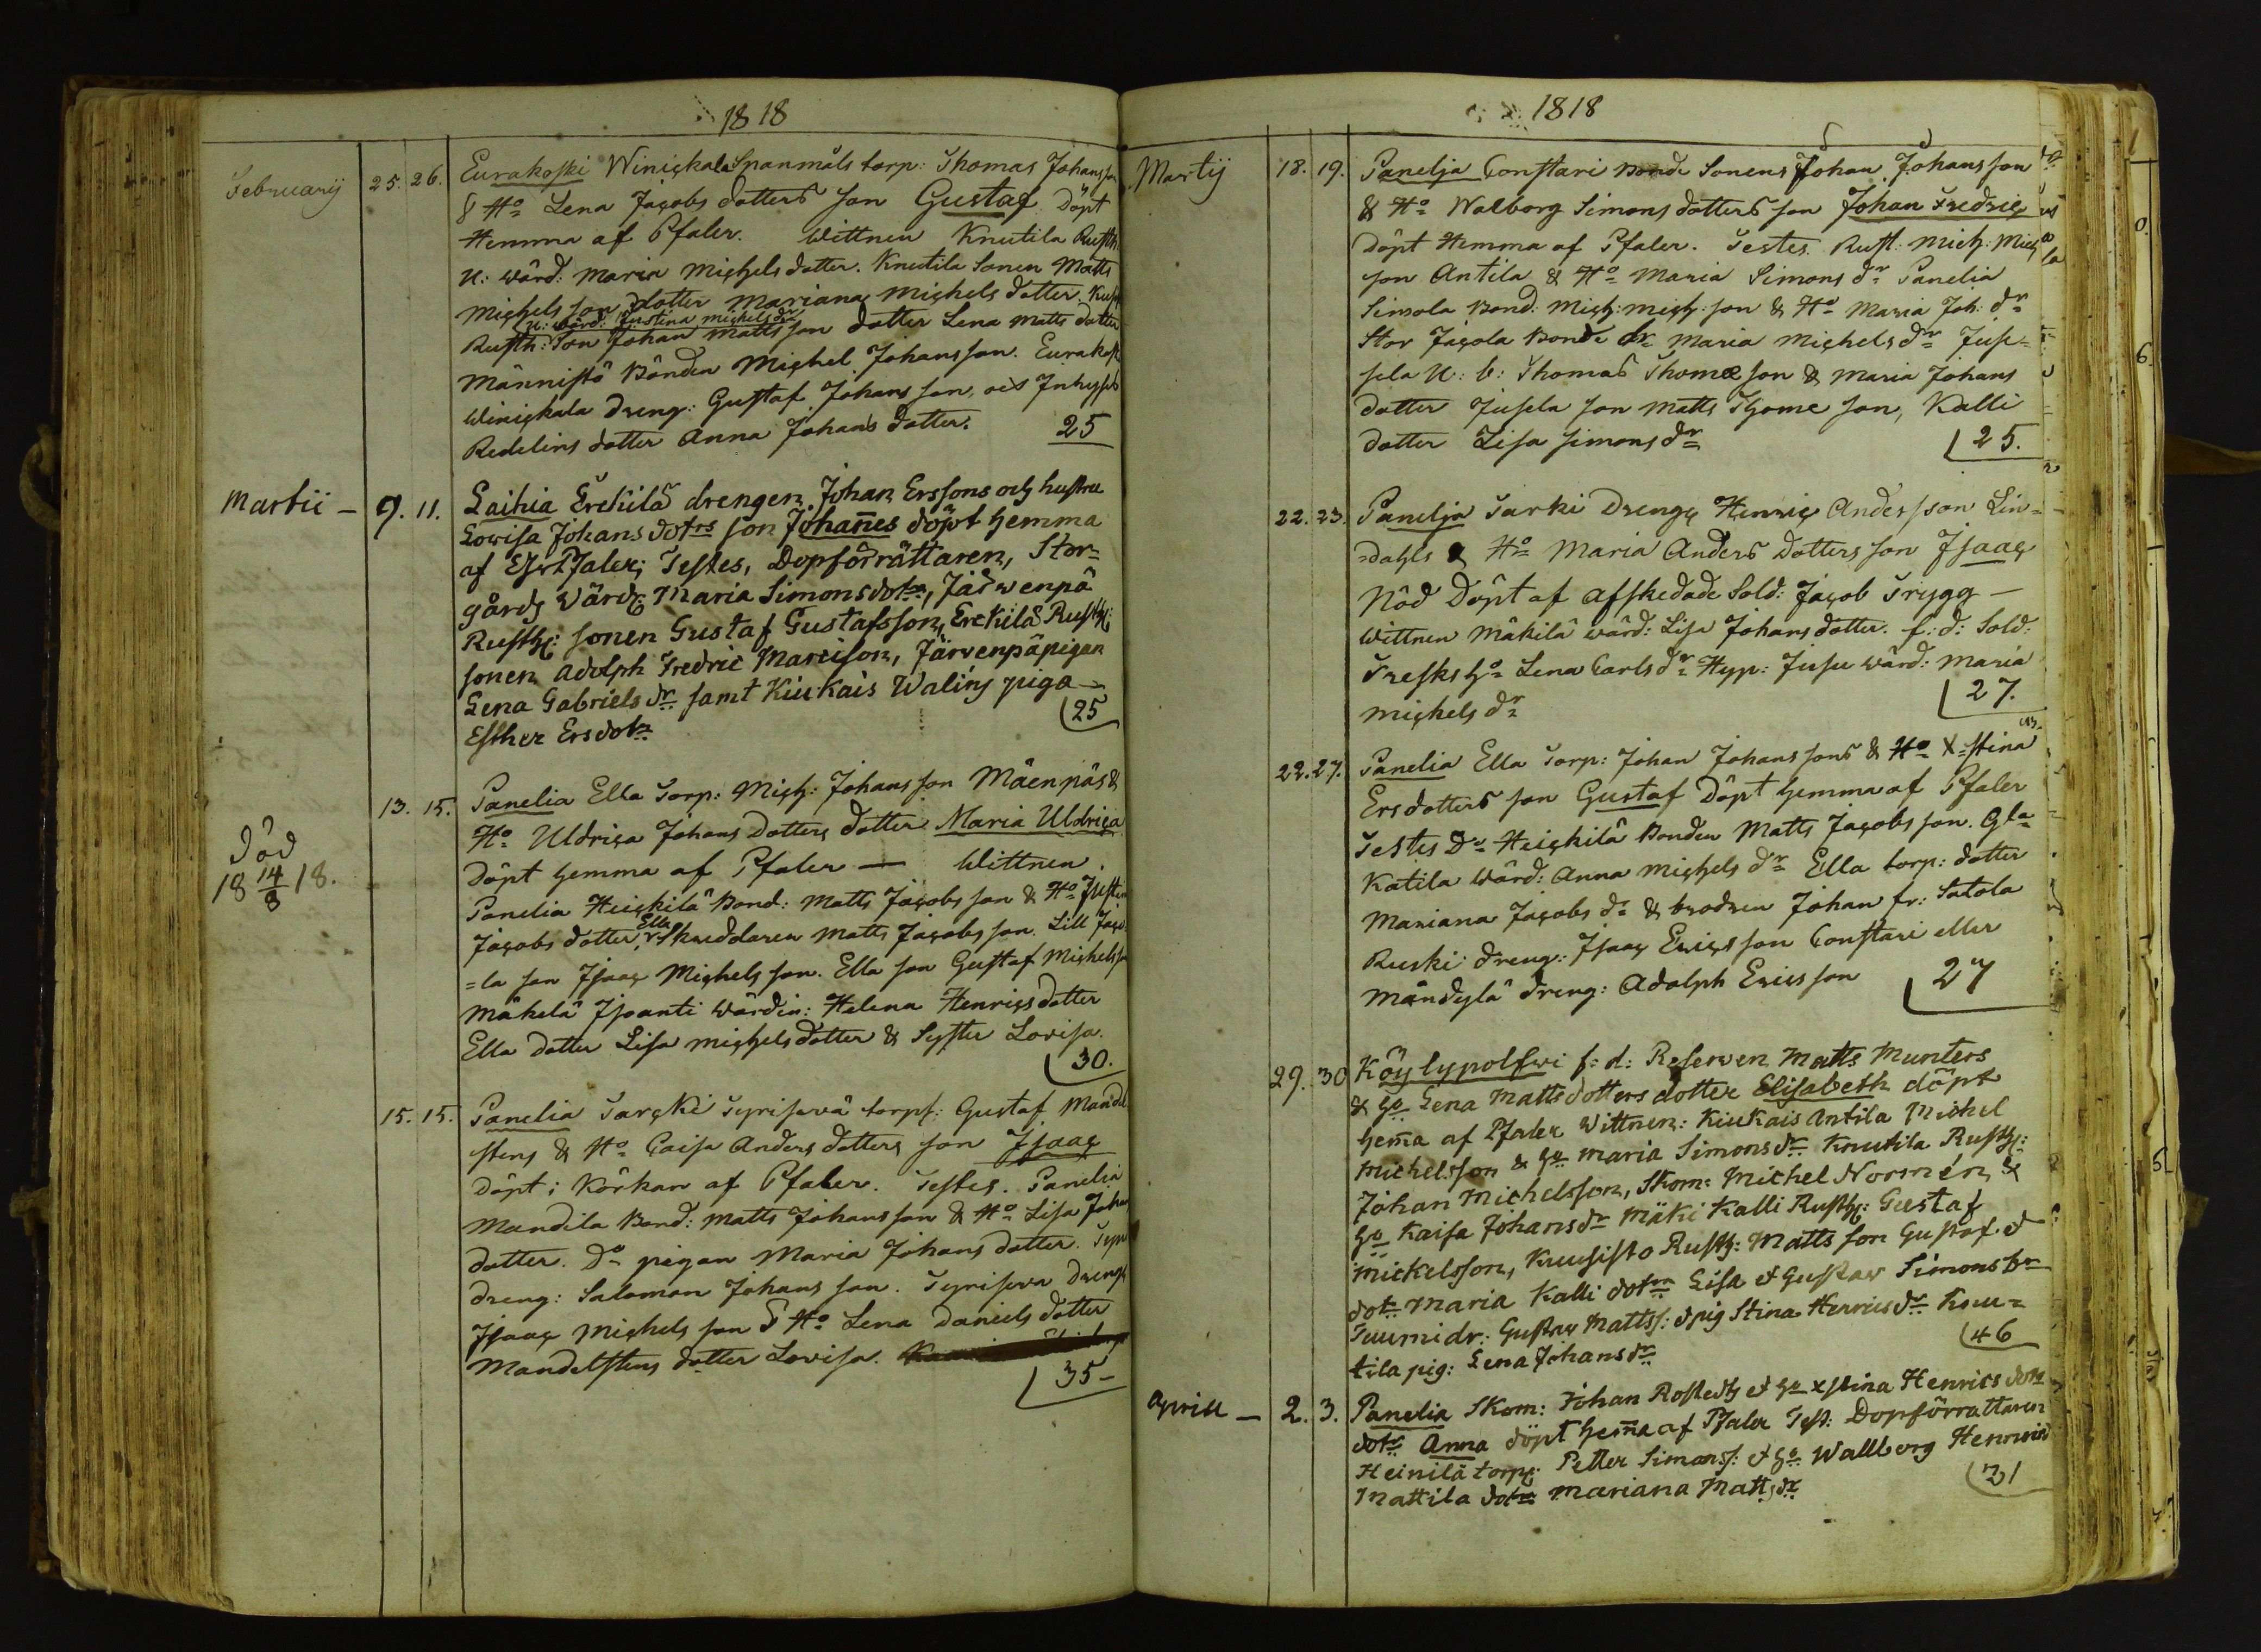 1818
Februarij 25. 26. Eurakoski Winickala Spanmåls torp: Thomas Johansson
& Ho Lena Jacobs dotters son Gustaf Döpt
Hemma af Pfaler. Wittnen Knutila Rusth:
U: wärd: Maria Michels dotter. Knutila Sonen Matts
Michels son dotter Mariana Michels dotter.
U: wärd: Justina Michels dr
Rusth: Son Johan Matts son dotter Lena Matts dotter
Männistö Bonden Michel Johansson. Eurakosk
Winickala dreng: Gustaf Johans son, och Inhyses
Redelins dotter Anna Johans dotter. 25
Martii - 9. 11. Laihia Erckilä drengen Johan Erssons och hustru
Lowisa Johans dotrs son Johannes döpt hemma
af Pfaler; Testes, Dopförrättaren, Stor-
gårds Wärd: Maria Simonsdotr, Järwenpä
Rusth: sonen Gustaf Gustafsson, Erckilä Rusth:
sonen Adolph Fredric Marcison, Järvenpäpigan
Lena Gabriels dr samt Kiukais Walins piga
Esther Ersdotr 25
13. 15. Panelia Ella Torp: Mich: Johansson Mäenpäs &
Ho Uldrica Johans Dotters dotter Maria Uldrica
Döpt hemma af Pfaler — Wittnen
död
18 14/8 18.
Panelia Heickilä Bond: Matts Jacobs son & Ho Justin
Jacobs dotter, Ella Skreddaren Matts Jacobs son. Lill Jaco
=la son Isaac Michels son. Ella son Gustaf Michelsso
Mäkelä Isanti Wärdin: Helena Henrics dotter
Ella dotter Lisa Michels dotter & Syster Lovisa.
30.
15. 15. Panelia Tarcki Syrisevä torp: Gustaf Mandel
stens & Ho Caisa Anders dotters son Isaac
döpt i Körkan af Pfaler. Testes. Panelia
Mandila Bond: Matts Johansson & Ho Lisa Johan
dotter. Do pigan Maria Johans dotter.
dreng: Salomon Johans son. Syriseva dreng
Isaac Michels son & Ho Lena Daniels dotter
Mandelstens dotter Lovisa.
35-
1818
Martij 18. 19. Panelja Constari Bonde Sonens Johan Johansson
& Ho Walborg Simons dotters son Johan Fredric
Döpt Hemma af Pfaler. Testes. Rust: Mich: Mich
son Antila & Ho Maria Simons dr Panelia
Simola Bond: Mich: Mich: son & Ho Maria Joh: dr
Stor Jacola Bonde dr Maria Michels dr Juse=
sela U: b: Thomas Thomæ son & Maria Johans
dotter Jusela son Matts Thome son, Kalli
dotter Lisa Simons dr 25.
22. 23. Panelja Tarki Dreng Henric Andersson Lin=
=dahls & Ho Maria Anders dotters son Isaac
Nöd Döpt af Afskedade Sold: Jacob Trygg —
Wittnen Mäkilä wärd: Lisa Johans dotter. f: d: Sold:
Fresks ho Lena Carls dr Hyp: Jusu wärd: Maria
Michels dr 27.
22. 27. Panelia Ella Torp: Johan Johanssons & Ho X-stina
Ersdotters son Gustaf Döpt hemma af Pfaler
Testes Do Heickilä Bonden Matts Jacobsson. Gla-
Katila Wärd: Anna Michels dr Ella torp: dotter
Mariana Jacobs dr & brodren Johan fr: Satola
Ruski dreng: Isaac Ericsson Constari eller
Mändylä dreng: Adolph Ericsson 27
29. 30 Köylypolfwi f: d: Reserven Matts Munters
& ho Lena Matts dotters dotter Elisabeth döpt
hema af Pfaler Wittnen: Kiukais Antila Michel
Michelsson & ho Maria Simons dr Knutila Rusth:
Johan Michelsson, Skom: Michel Normén &
ho Kaisa Johans dr Mäki Kalli Rusth: Gustaf
Mickelsson, Kuusisto Rusth: Matts son Gustaf &
dotr Maria Kalli dotrn Lisa et Gustav Simons br
Tuumi dr: Gustav Mattss: & pig Stina Henrics dr Knu=
tila pig: Lena Johans dr 46
Aprill - 2. 3. Panelia Skom: Johan Rostedts et ho Xstina Henrics dotr
dotr Anna döpt hema af Pfaler Test: Dopförrattaren
Heinilä torp: Petter Simonss: et ho Wallborg Henrics
Mattila dotr Mariana Matts dr 21